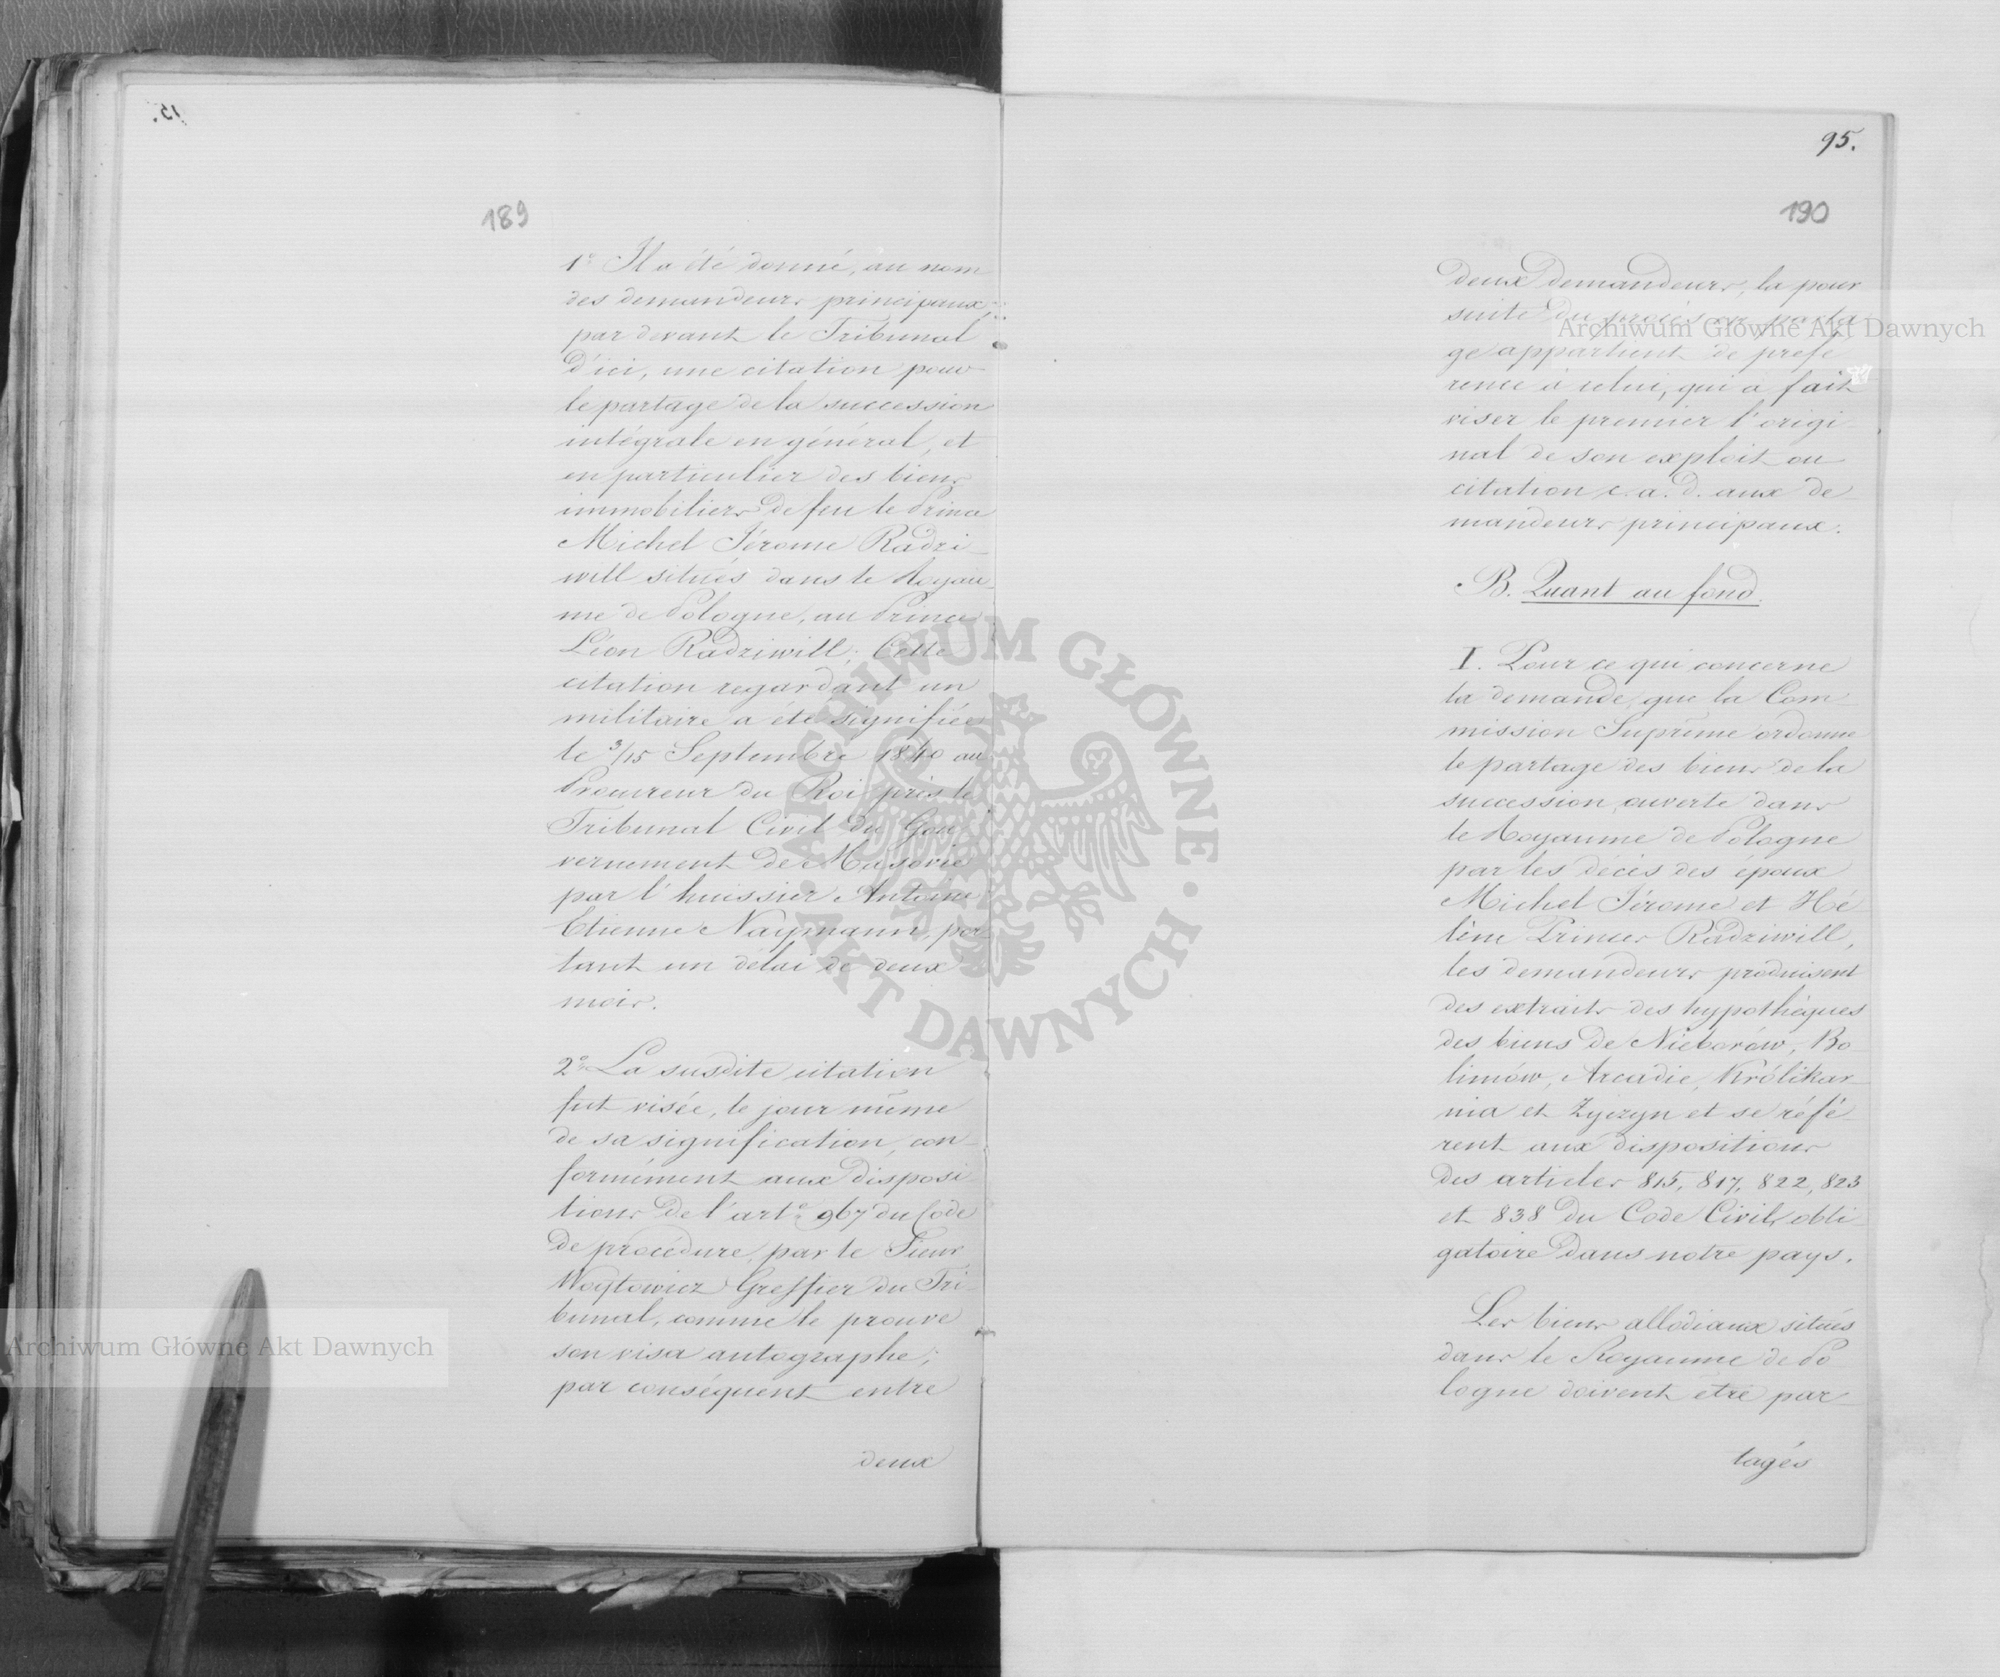 189
1º Il a été donné, au nom
des demandeurs principaux,
par devant le Tribunal
d'ici, une citation pour
le partage de la succession
intégrale en général, et
en particulier des biens
immobiliers de feu le Prince
Michel Jérome Radzi-
will situés dans le Royau-
me de Pologne, au Prince
Léon Radziwill; Cette
citation regardant un
militaire a été signifiée
le 3/15 Septembre 1840 au
Procureur du Roi près le
Tribunal Civil du Gou-
vernement de Masovie
par l'huissier Antoine
Etienne Naymann, por-
tant un délai de deux
mois.
2º La susdite citation
fut visée, le jour même
de sa signification, con-
formément aux disposi
tions de l'artº 967 du Code
de procédure, par le Sieur
Woytowicz Greffier du Tri-
bunal, comme le prouve
son visa autographe;
par conséquent entre
deux
95.
190
deux demandeurs, la pour
suite du procès en parta
ge appartient de préfé
rence à celui, qui a fait
viser le premier l'origi
nal de son exploit ou
citation c. a. d. aux de
mandeurs principaux.
B. Quant au fond.
I. Pour ce qui concerne
la demande, que la Com-
mission Suprême ordonne
le partage des biens de la
succession, ouverte dans
le Royaume de Pologne
par les décès des époux
Michel Jérome et Hé-
lène Princes Radziwill,
les demandeurs produisent
des extraits des hypothèques
des biens de Nieborów, Bo-
limów, Arcadie, Królikar-
nia et Zyczyn et se réfé-
rent aux dispositions
des articles 815, 817, 822, 823
et 838 du Code Civil, obli-
gatoire dans notre pays.
Les biens allodiaux situés
dans le Royaume de Po
logne doivent être par-
tagés
87
Archiwum Główne Akt Dawnych
Archiwum Główne Akt Dawnych
ARCHIWUM GŁÓWNE · AKT DAWNYCH ·